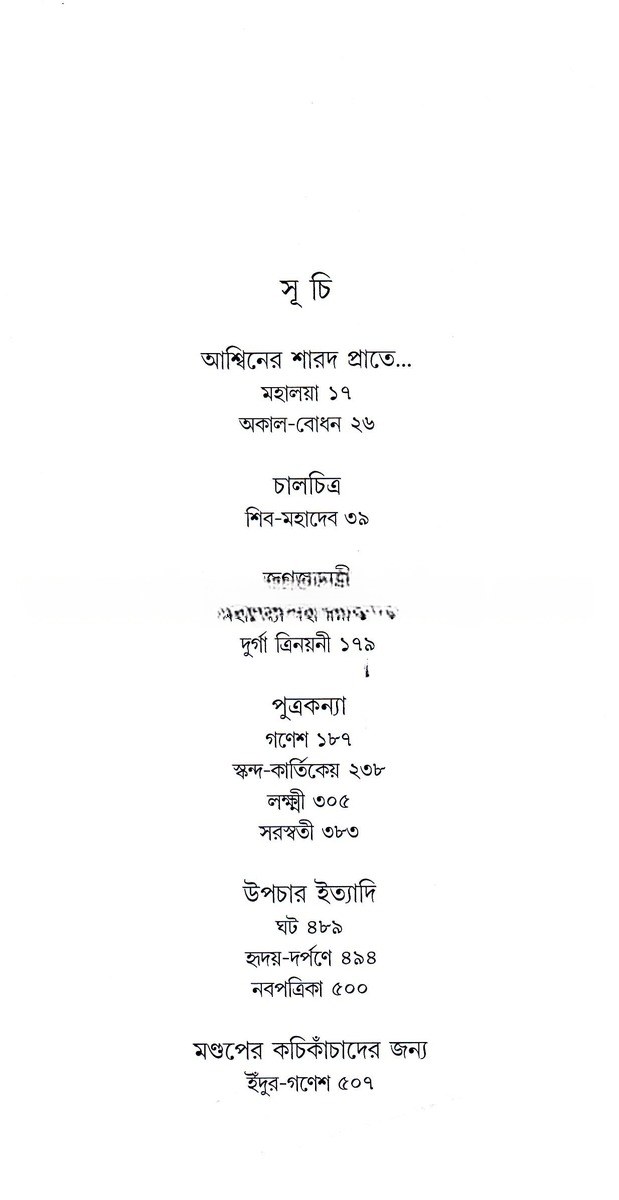 সূ চি
আশ্বিনের শারদ প্রাতে...
মহালয়া ১৭
অকাল-বোধন ২৬
চালচিত্র
শিব-মহাদেব ৩৯
দুর্গা ত্রিনয়নী ১৭৯
পুত্রকন্যা
গণেশ ১৮৭
স্কন্দ-কার্তিকেয় ২৩৮
লক্ষ্মী ৩০৫
সরস্বতী ৩৮৩
উপচার ইত্যাদি
ঘট ৪৮৯
হৃদয়-দর্পণে ৪৯৪
নবপত্রিকা ৫০০
মণ্ডপের কচিকাঁচাদের জন্য
ইঁদুর-গণেশ ৫০৭